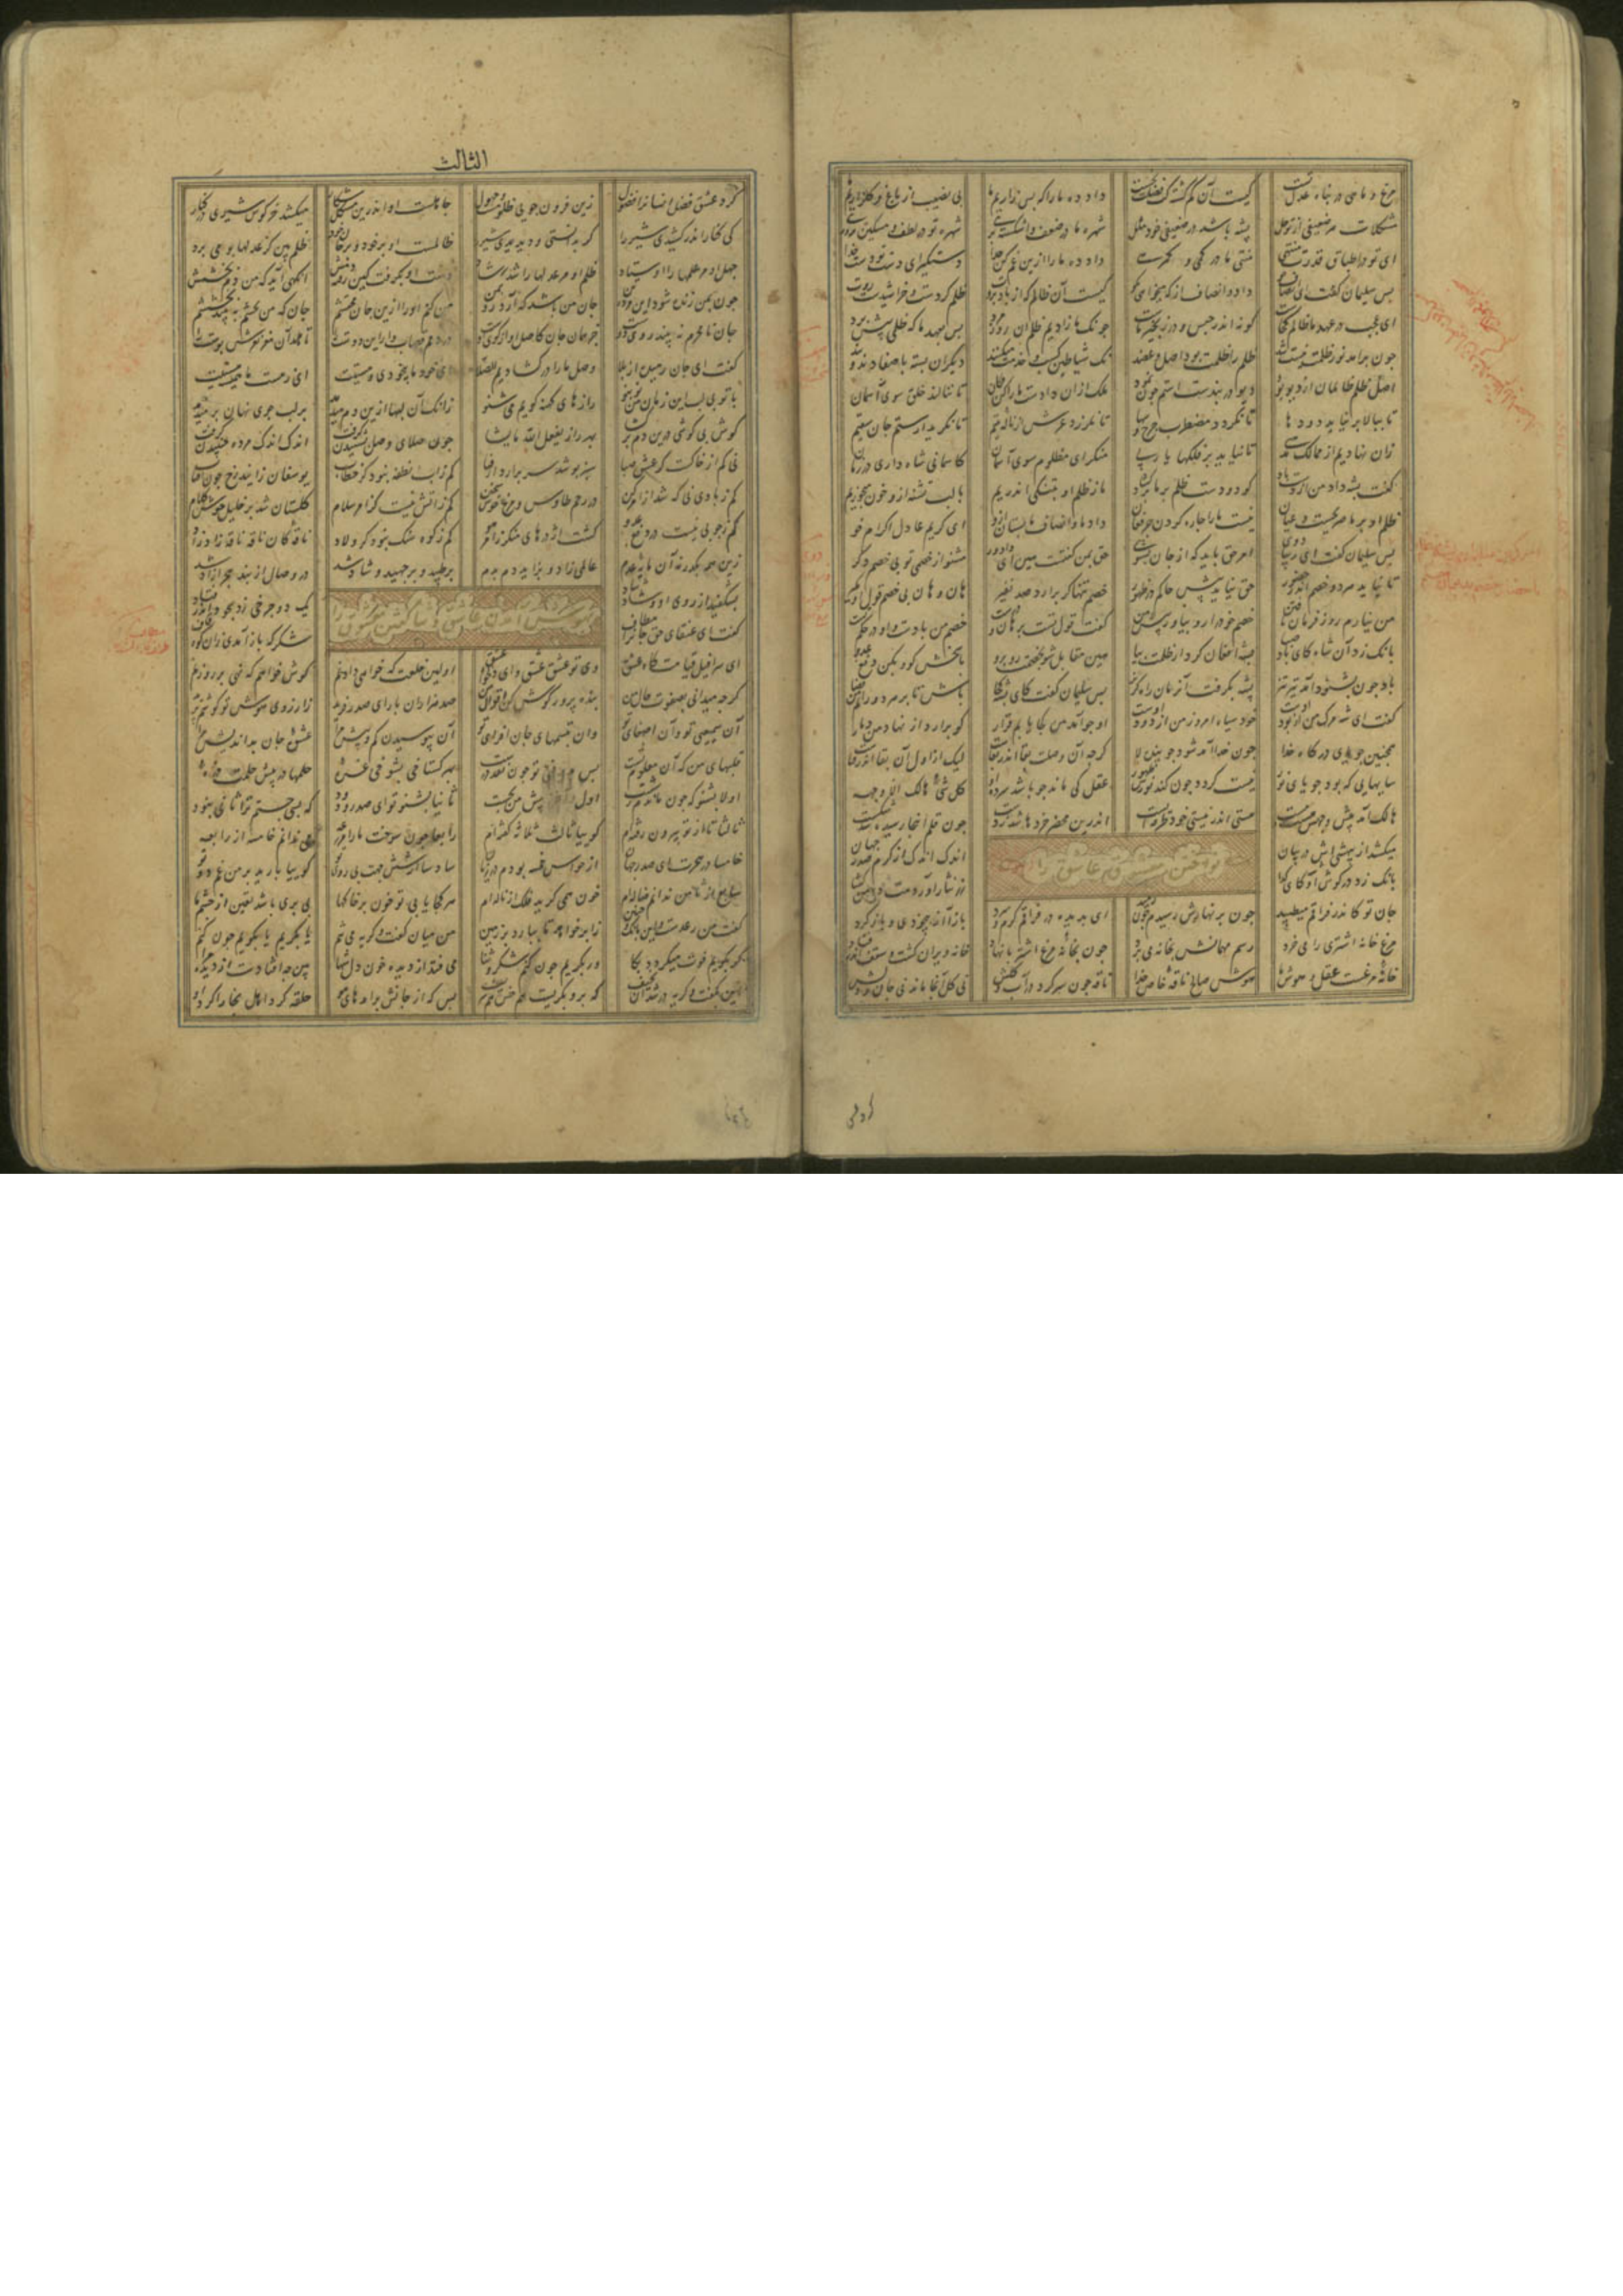 مرغ و ماهی در پناه عدل تست کیست آن گم گشته کز فضلت نجست داد ده ما را که بس زاریم ما بی نصیب از باغ و گلزاریم ما
مشکلات هر ضعیفی از تو حل پشه باشد در ضعیفی خود مثل شهره ما در ضعف و اشکسته پری شهره تو در لطف و مسکین پروری
ای تو در اطباق قدرت منتهی منتهی ما در کمی و گمرهی داد ده ما را ازین غم کن جدا دستگیر ای دست تو دست خدا
پس سلیمان گفت ای انصاف جو داد و انصاف از که میخواهی بگو کیست آن ظالم که از باد بروت ظلم کردست و خراشیدست روت
ای عجب در عهد ما ظالم کجاست کو نه اندر حبس و در زنجیر ماست چونک ما زادیم ظلم آن روز مرد پس بعهد ما که ظلمی پیش برد
چون برآمد نور ظلمت نیست شد ظلم را ظلمت بود اصل و عضد نک شیاطین کسب و خدمت میکنند دیگران بسته باصفادند و بند
اصل ظلم ظالمان از دیو بود دیو در بندست استم چون نمود ملک ازان دادست ما را کن فکان تا ننالد خلق سوی آسمان
تا ببالا بر نیاید دودها تا نگردد مضطرب چرخ و سها تا نلرزد عرش از ناله یتیم تا نگردد از ستم جان سقیم
زان نهادیم از ممالک مذهبی تا نیاید بر فلکها یا ربی منگر ای مظلوم سوی آسمان کاسمانی شاه داری در زمان
گفت پشه داد من از دست باد کو دو دست ظلم بر ما برگشاد ما ز ظلم او بتنگی اندریم با لب بسته ازو خون میخوریم
ظلم او بر ما صریحست و عیان نیست ما را چاره کردن جز فغان داد ما و انصاف ما بستان ازو ای کریم عادل اکرام خو
پس سلیمان گفت ای زیبا دوی امر حق باید که از جان بشنوی حق بمن گفتست هین ای دادور مشنو از خصمی تو بی خصم دگر
تا نیاید هر دو خصم اندر حضور حق نیاید پیش حاکم در ظهور خصم تنها گر برآرد صد نفیر هان و هان بی خصم قول او مگیر
من نیارم رو ز فرمان تافتن خصم خود را رو بیاور پیش من گفت قول تست برهان و درست خصم من بادست و او در حکم تست
بانک زد آن شاه کای باد صبا پشه افغان کرد از ظلمت بیا هین مقابل شو بخصمت رو برو پاسخش گو و بکن دفع عدو
باد چون بشنود آمد تیز تیز پشه بگرفت آن زمان راه گریز پس سلیمان گفت کای پشه کجا باش تا بر هر دو رانم من قضا
گفت ای شه مرگ من از بود اوست خود سیاه امروز من از دود اوست او چو آمد من کجا یابم قرار کو برارد از نهاد من دمار
همچنین جویای درگاه خدا چون خدا آمد شود جوینده لا گرچه آن وصلت بقا اندر بقاست لیک از اول آن بقا اندر فناست
سایهایی که بود جویای نور نیست گردد چون کند نورش ظهور عقل کی ماند چو باشد سرده او کل شیء هالک الا وجهه
هالک آمد پیش وجهش هست و نیست هستی اندر نیستی خود طرفه ایست اندرین محضر خردها شد ز دست چون قلم اینجا رسیده شد شکست
میکشد از بیهشی اش در بیان اندک اندک از کرم صدر جهان
نواختن معشوق عاشق را
بانک زد در گوش او کای گدا زر نثار آوردمت دامن گشا
جان تو کاندر فراقم میطپید چون بزنهارش رسیدم چون رمید ای بدیده در فراقم گرم و سرد باز آ از بیخودی و باز گرد
مرغ خانه اشتری را بی خرد رسم مهمانش بخانه می برد چون بخانه مرغ اشتر پا نهاد خانه ویران گشت و سقف اندر فتاد
خانه مرغست عقل و هوش ما هوش صالح ناقه خاص خدا ناقه چون سر کرد در آب و گلش نی گل آنجا ماند نی جان و دلش
الثالث
کرد عشق فضل انسان را فضول زین فزون جویی ظلومست و جهول جاهلست او اندرین مشکل شکار میکشد خرگوش شیری در کنار
کی کنار اندر کشیدی شیر را گر بدانستی و دیدی شیر را ظالمست او بر خود و بر جان خود ظلم بین کز عدلها گو می برد
جهل او مر علمها را اوستاد ظلم او مر عدلها را شد رشاد دست او بگرفت کین رفته دمش آنگهی آید که من دم بخشمش
چون بمن زنده شود این مرده تن جان من باشد که رو آرد بمن من کنم او را ازین جان محتشم جان که من بخشم ببیند بخششم
جان نامحرم نبیند روی دوست جز همان جان کاصل او از کوی دوست در دمم قصاب وار این دوست را تا هلد آن مغز نغزش پوست را
گفت ای جان رمیده از بلا وصل ما را در گشادیم الصلا ای خود ما بیخودی و مستیت ای ز هست ما همیشه هستیت
با تو بی لب این زمان من نو بنو رازهای کهنه گویم می شنو زانک آن لبها ازین دم میرمد بر لب جوی نهان بر میدمد
گوش بی گوشی درین دم بر گشا بهر راز یفعل الله ما یشا چون صلای وصل بشنیدن گرفت اندک اندک مرده جنبیدن گرفت
نی کم از خاکست کز عشق صبا سبز پوشد سر برآرد از فنا کم ز آب نطفه نبود کز خطاب یوسفان زایند رخ چون آفتاب
کم ز بادی نی که شد از امر کن در رحم طاوس و مرغ خوش سخن کم ز آتش نیست کز امر سلام گلستان شد بر خلیل خوش کلام
کم ز چوبی نیست در دفع عدو گشت اژدرهای منکر ز امر هو کم ز کوه سنگ نبود کز ولاد ناقه کان ناقه ناقه زاد زاد
زین همه بگذر نه آن مایه عدم عالمی زاد و بزاید دم بدم بر طپید و بر جهید و شاد شد در وصال از بند هجر آزاد شد
بشکفید از روی او و شاد شاد یک دو چرخی زد سجود اندر فتاد
آمدن عاشق
گفت ای عنقای حق جان را مطاف شکر که باز آمدی زان کوه قاف
ای سرافیل قیامت گاه عشق وی تو عشق عشق و ای دلخواه عشق اولین خلعت که خواهی دادنم گوش خواهم که نهی بر روزنم
گرچه میدانی بصفوت حال من بنده پرور گوش کن اقوال من صد هزاران بار ای صدر فرید ز آرزوی گوش تو هوشم پرید
آن سمیعی تو و آن اصغای تو وان تبسمهای جان افزای تو آن نیوشیدن کم و بیش مرا عشوه جان بداندیش مرا
قلبهای من که آن معلوم تست پس پذیرفتی تو چون نقد درست بهر گستاخی شوخی غره حلمها در پیش حلمت ذره
اولا بشنو که چون ماندم ز شست اول و آخر ز پیش من بجست ثانیا بشنو تو ای صدر ودود که بسی جستم ترا ثانی نبود
ثالثا تا از تو بیرون رفته ام گوییا ثالث ثلاثه گفته ام رابعا چون سوخت ما را مزرعه می ندانم خامسه از رابعه
خامسا در هجرت ای صدر جهان از حواس خمسه بودم در زیان سادسا از شش جهت بی روی تو گوییا بارید بر من غم دو تو
سابع از ثامن ندانم ضاله ام خون همی گرید فلک از ناله ام هر کجا یابی تو خون بر خاکها پی بری باشد یقین از چشم ما
گفت من رعدست و این بانگ و حنین ز ابر خواهد تا ببارد بر زمین من میان گفت و گریه می تنم یا بگریم یا بگویم چون کنم
گر بگویم فوت میگردد بکا ور بگریم چون کنم شکر و ثنا می فتد از دیده خون دل شها بین چه افتادست از دیده مرا
این بگفت و گریه در شد آن نحیف که برو بگریست هم دون هم شریف بس که از جانش برآمد های هو حلقه کرد اهل بخارا گرد او